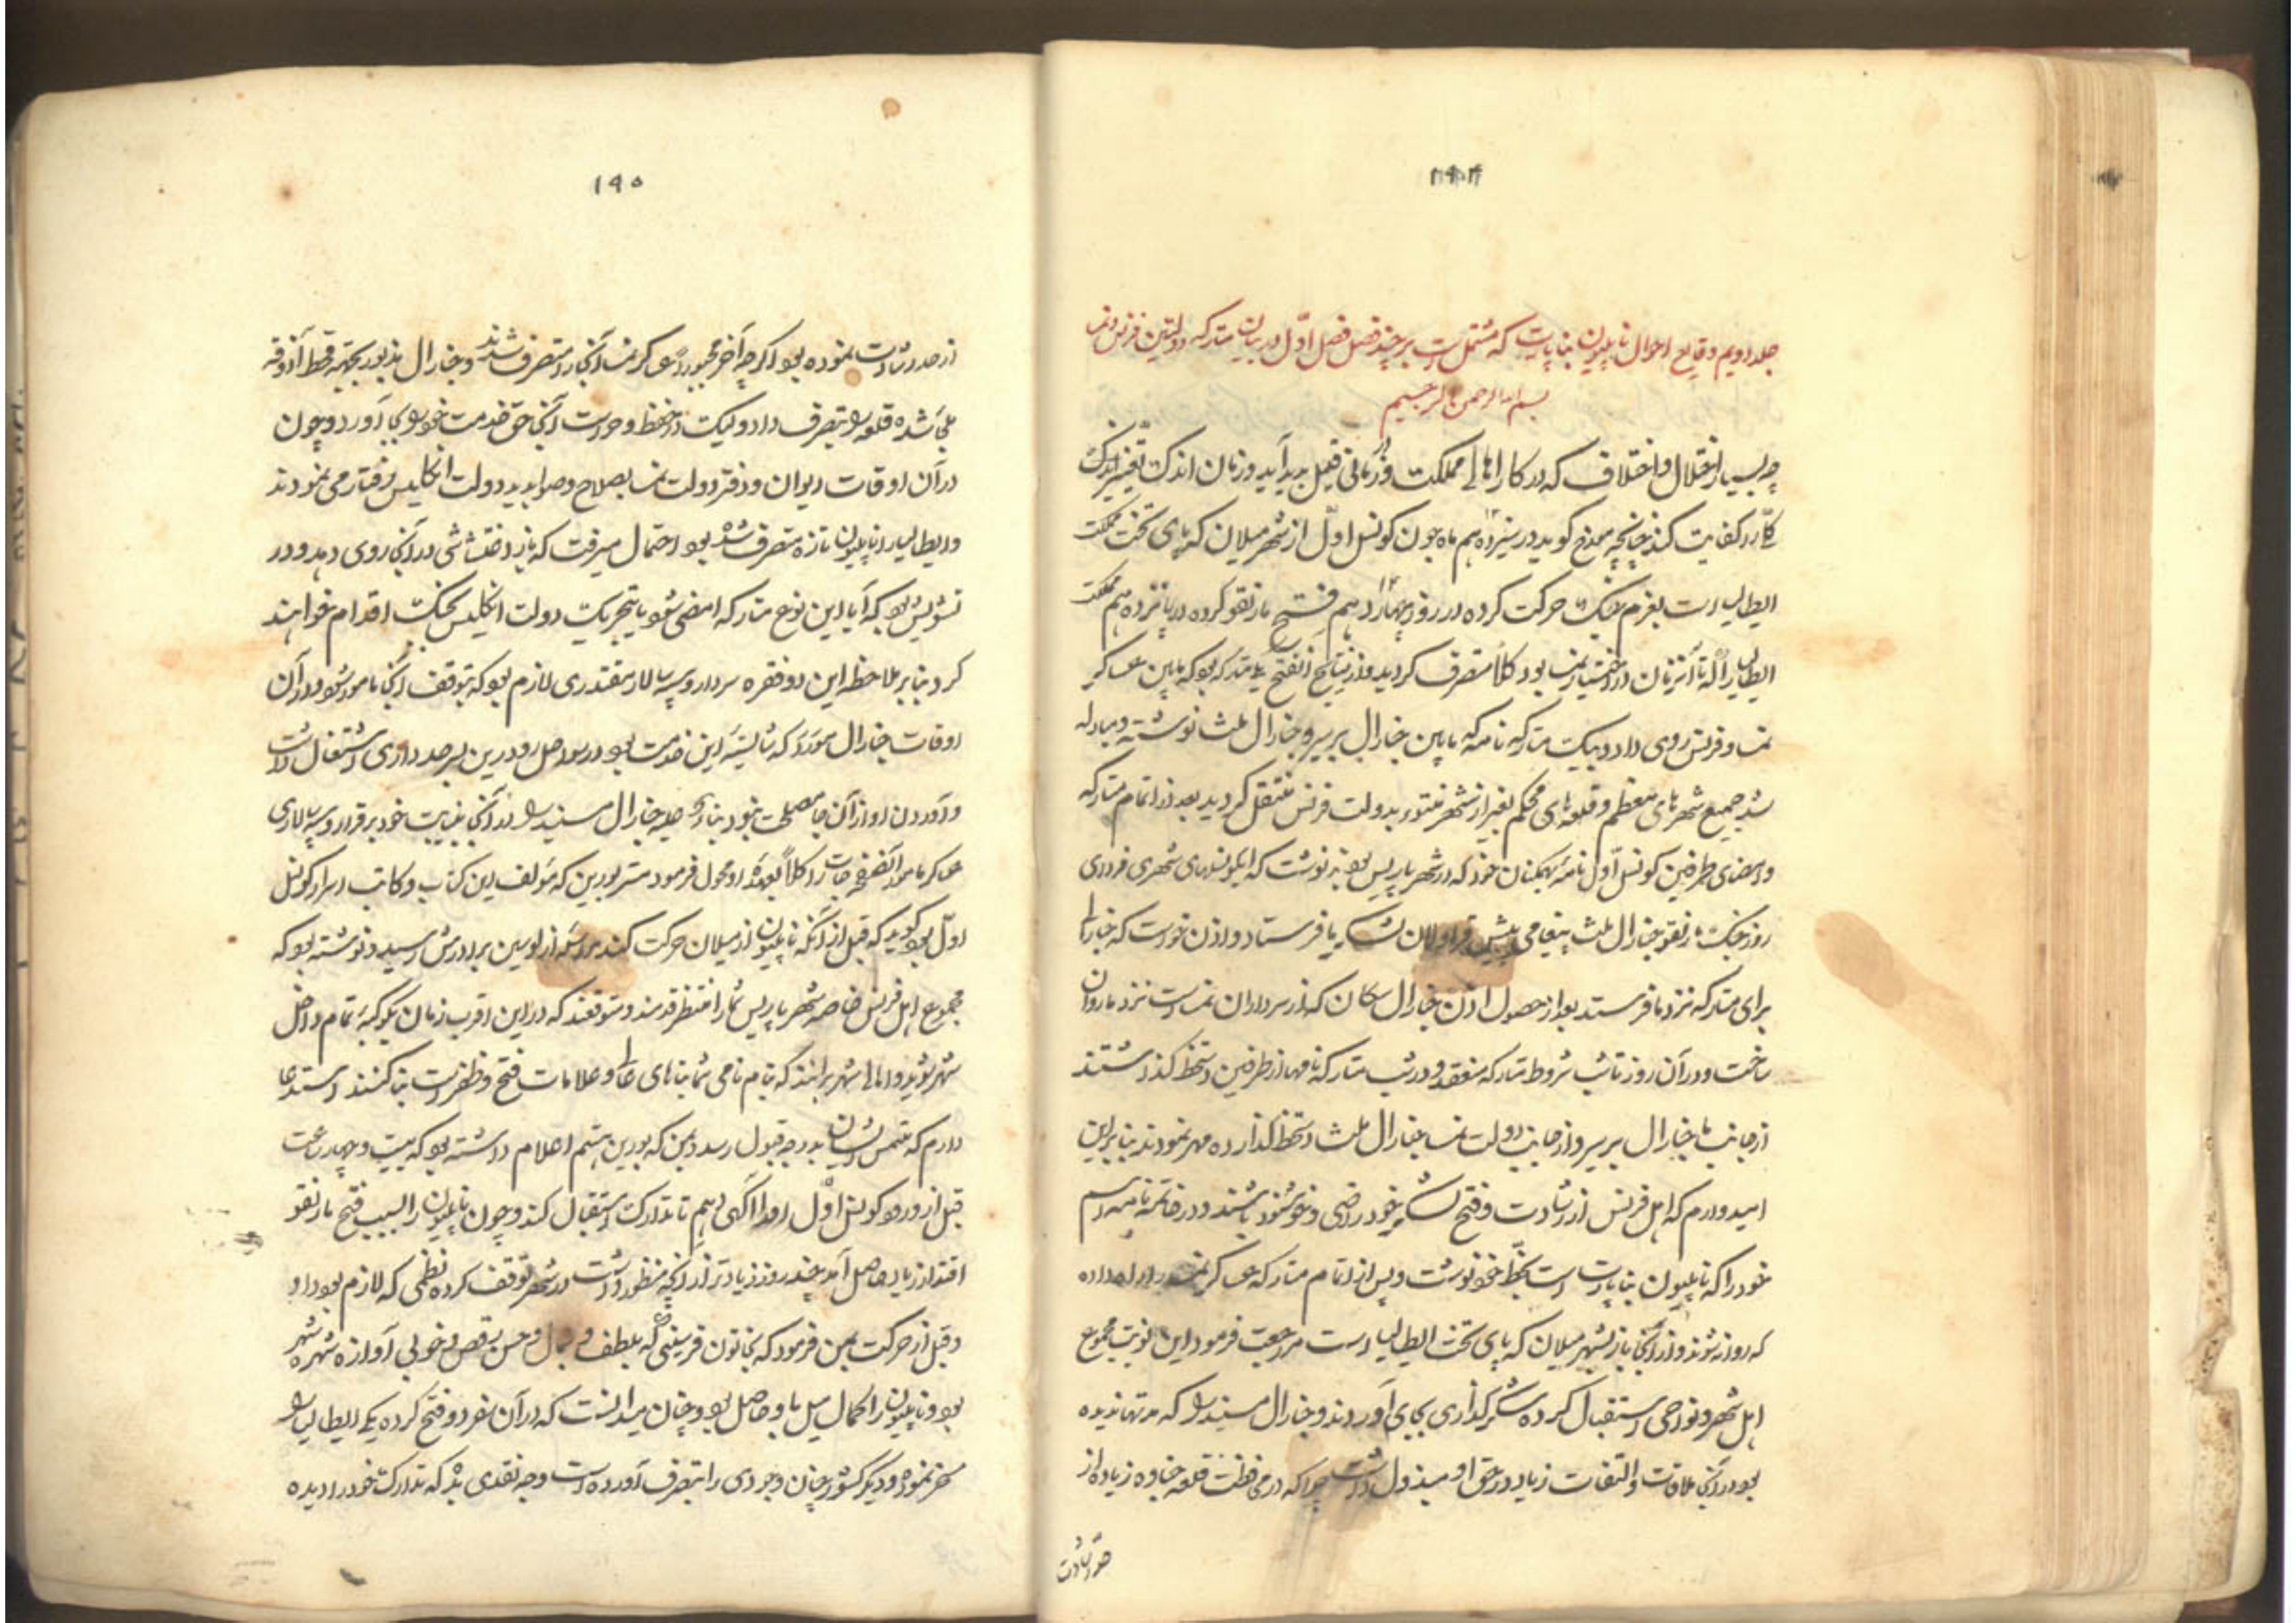 جلد دویم وقایع احوال ناپلیون بناپارت که مشتمل است بر چند فصل فصل اوّل در بیان متارکه دولتین فرنس و نمسا
بسم الله الرحمن الرحیم
چه بسیار اختلال و اختلاف که در کار اهالی مملکت در زمانی قلیل پدید آید و زمان اندک تغییر
کلّ را کفایت کند چنانچه مورخ گوید در سیزدهم ماه جون کونسل اوّل از شهر میلان که پای تخت مملکت
ایطالیا است بعزم جنگ حرکت کرده در روز چهاردهم فتح مارنقو کرده در پانزدهم مملکت
ایطالیا را که تا آنزمان در اختیار نمسا بود کلاً متصرف گردید و از نتایج آنفتح یکی متارکه بود که مابین عساکر
نمسا و فرنس روی داد و بیک متارکه نامه که مابین جنارال بریر و جنارال ملث نوشته و مبادله
شد جمیع شهرهای معظم و قلعه‌های محکم بغیر از شهر منتوه بدولت فرنس منتقل گردید بعد از اتمام متارکه
و امضای طرفین کونسل اوّل نامه بهمگنان خود که در شهر پاریس بودند نوشت که ای کونسلهای شهری فردای
روز جنگ مارنقو جنارال ملث پیغامی به پیش قراولان لشکر ما فرستاد و اذن خواست که جنارالی
برای متارکه نزد ما فرستد بعد از حصول اذن جنارال سکان که از سرداران نمسا است نزد ما روان
ساخت و در آن روز تا شب شروط متارکه منعقد و در شب متارکه نامها از طرفین دستخط گذاشتند
از جانب ما جنارال بریر و از جانب دولت نمسا جنارال ملث دستخط گذارده مهر نمودند بنابراین
امیدوارم که اهل فرنس از رشادت و فتح لشکر خود راضی و خوشنود باشند و در خاتمه نامه اسم
خود را که ناپلیون بناپارت است بخطّ خود نوشت و پس از اتمام متارکه عساکر نمسا را راه داده
که روانه شوند و از آنجا باز بشهر میلان که پای تخت ایطالیا است مراجعت فرمود این نوبت مجموع
اهل شهر و نواحی استقبال کرده شکرگذاری بجای آوردند و جنارال مسینه را که مدتها ندیده
بود در آنجا ملاقات و التفات زیاد در حق او مبذول داشت چرا که در محافظت قلعه جنوه زیاده از
حد رشادت
۱۹۵
از حد رشادت نموده بود اگرچه آخر مجبوراً عساکر نمسا آنجا را متصرف شدند و جنارال مذبور بجهته قحط آذوقه
ملجأ شده قلعه را بتصرف داد ولیکن در حفظ و حراست آنجا حق خدمت خود را بجا آورد و چون
در آن اوقات دیوان و دفتر دولت نمسا بصلاح و صوابدید دولت انگلیس رفتار می نمودند
و ایطالیا را ناپلیون تازه متصرف شده بود احتمال میرفت که باز اغتشاشی در آنجا روی دهد و در
تشویش بود که آیا این نوع متارکه امضی شود یا بتحریک دولت انگلیس بجنگ اقدام خواهند
کرد بنابر ملاحظه این دو فقره سردار و سپه سالار مقتدری لازم بود که بتوقف آنجا مامور شود در آن
اوقات جنارال مورَو که شایسته این خدمت بود در سواحل رود رین بسرحد داری اشتغال داشت
و آوردن او از آن جا مصلحت نبود بنا علیه جنارال مسینه را در آنجا بنیابت خود برقرار و سپه سالاری
عساکر مامور آنصفحات را کلاً بعهده او محول فرمود مستر بورین که مؤلف این کتاب و کاتب اسرار کونسل
اوّل بود گوید که قبل از آنکه ناپلیون از میلان حرکت کند مراسله از لوسین برادرش رسید و نوشته بود که
مجموع اهل فرنس خاصه شهر پاریس شما را منتظر قدمند و متوقعند که در این اقرب زمان بکوکبه تمام داخل
شهر شوید و اهالی شهر برانند که بنام نامی شما بناهای عالی و علامات فتح و ظفرت بنا کنند استدعا
دارم که ملتمس ایشان بدرجه قبول رسد و بمن که بورین هستم اعلام داشته بود که بیست و چهار ساعت
قبل از ورود کونسل اوّل او را آگهی دهم تا تدارک استقبال کند و چون ناپلیون را بسبب فتح مارنقو
اقتدار زیاد حاصل آمد چند روز زیادتر از آنچه منظور داشت در شهر توقف کرده نظمی که لازم بود داد
و قبل از حرکت بمن فرمود که بخاتون فریسنی که بلطف و جمال و حسن رقص و خوبی آوازه شهره شهر
بود و ناپلیون را کمال میل باو حاصل بود و چنان میدانست که در آن سفر دو فتح کرده یکی ایطالیا را
مسخر نموده و دیگر کشور چنان وجودی را بتصرف آورده است وجه نقدی بده که تدارک خود را دیده